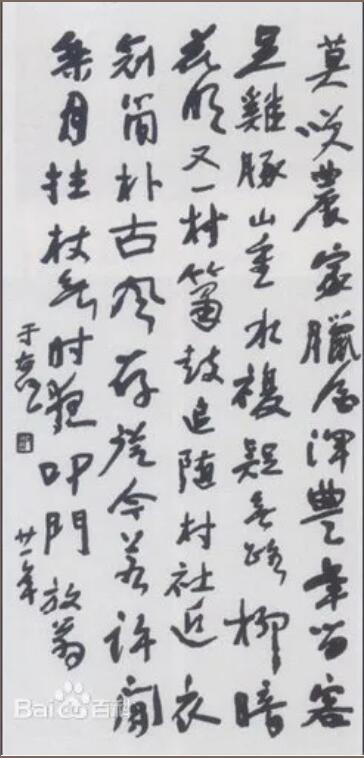 莫咲農家臘酒渾豐年留客
足雞豚山重水複疑無路柳暗
花明又一村簫鼓追隨村社近衣
冠簡朴古風存從今若許閒
乘月拄杖無时夜叩門放翁
廿一年
于右任
Bai百科